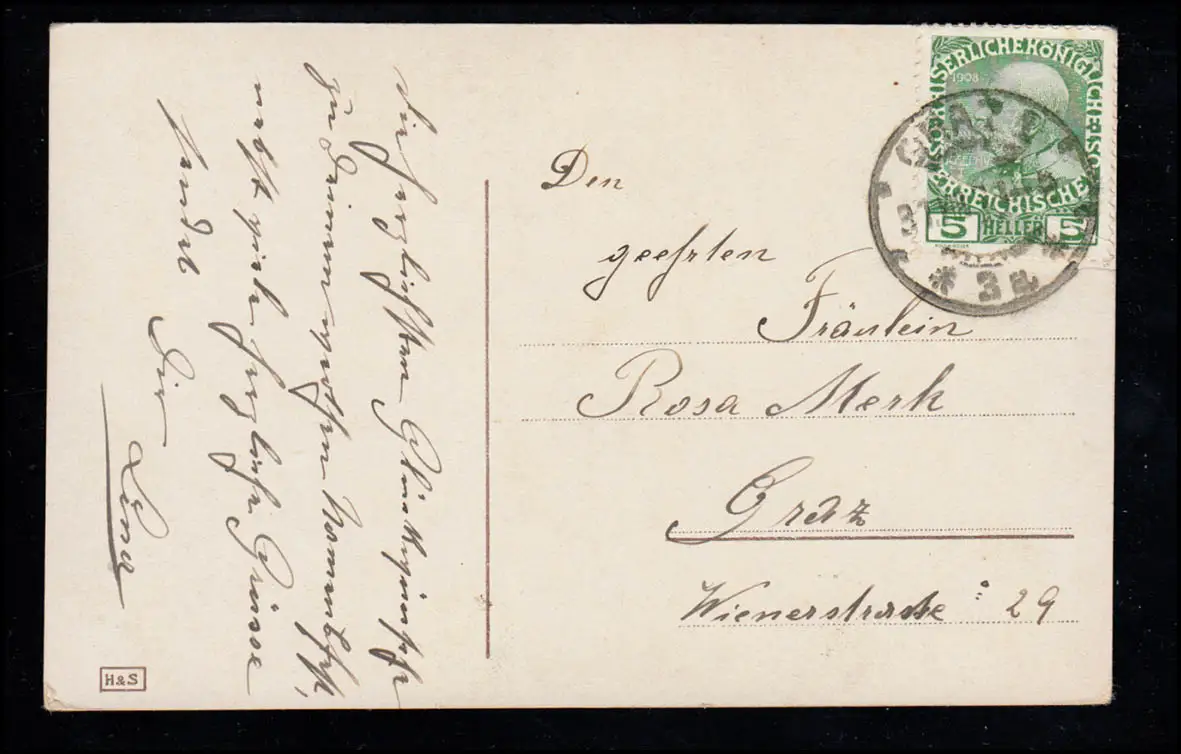 Die herzlichsten Glückwünsche
zu Deinem werthen Namensfest,
nebst viele herzliche Grüsse
sendet
Dir
Lina
H&S
Den
geehrten
Fräulein
Rosa Merk
Graz
Wienerstrasse : 29
KAISERLICHE KÖNIGLICHE ÖSTERREICHISCHE POST
1908
5 HELLER 5
GRAZ
* 3a *